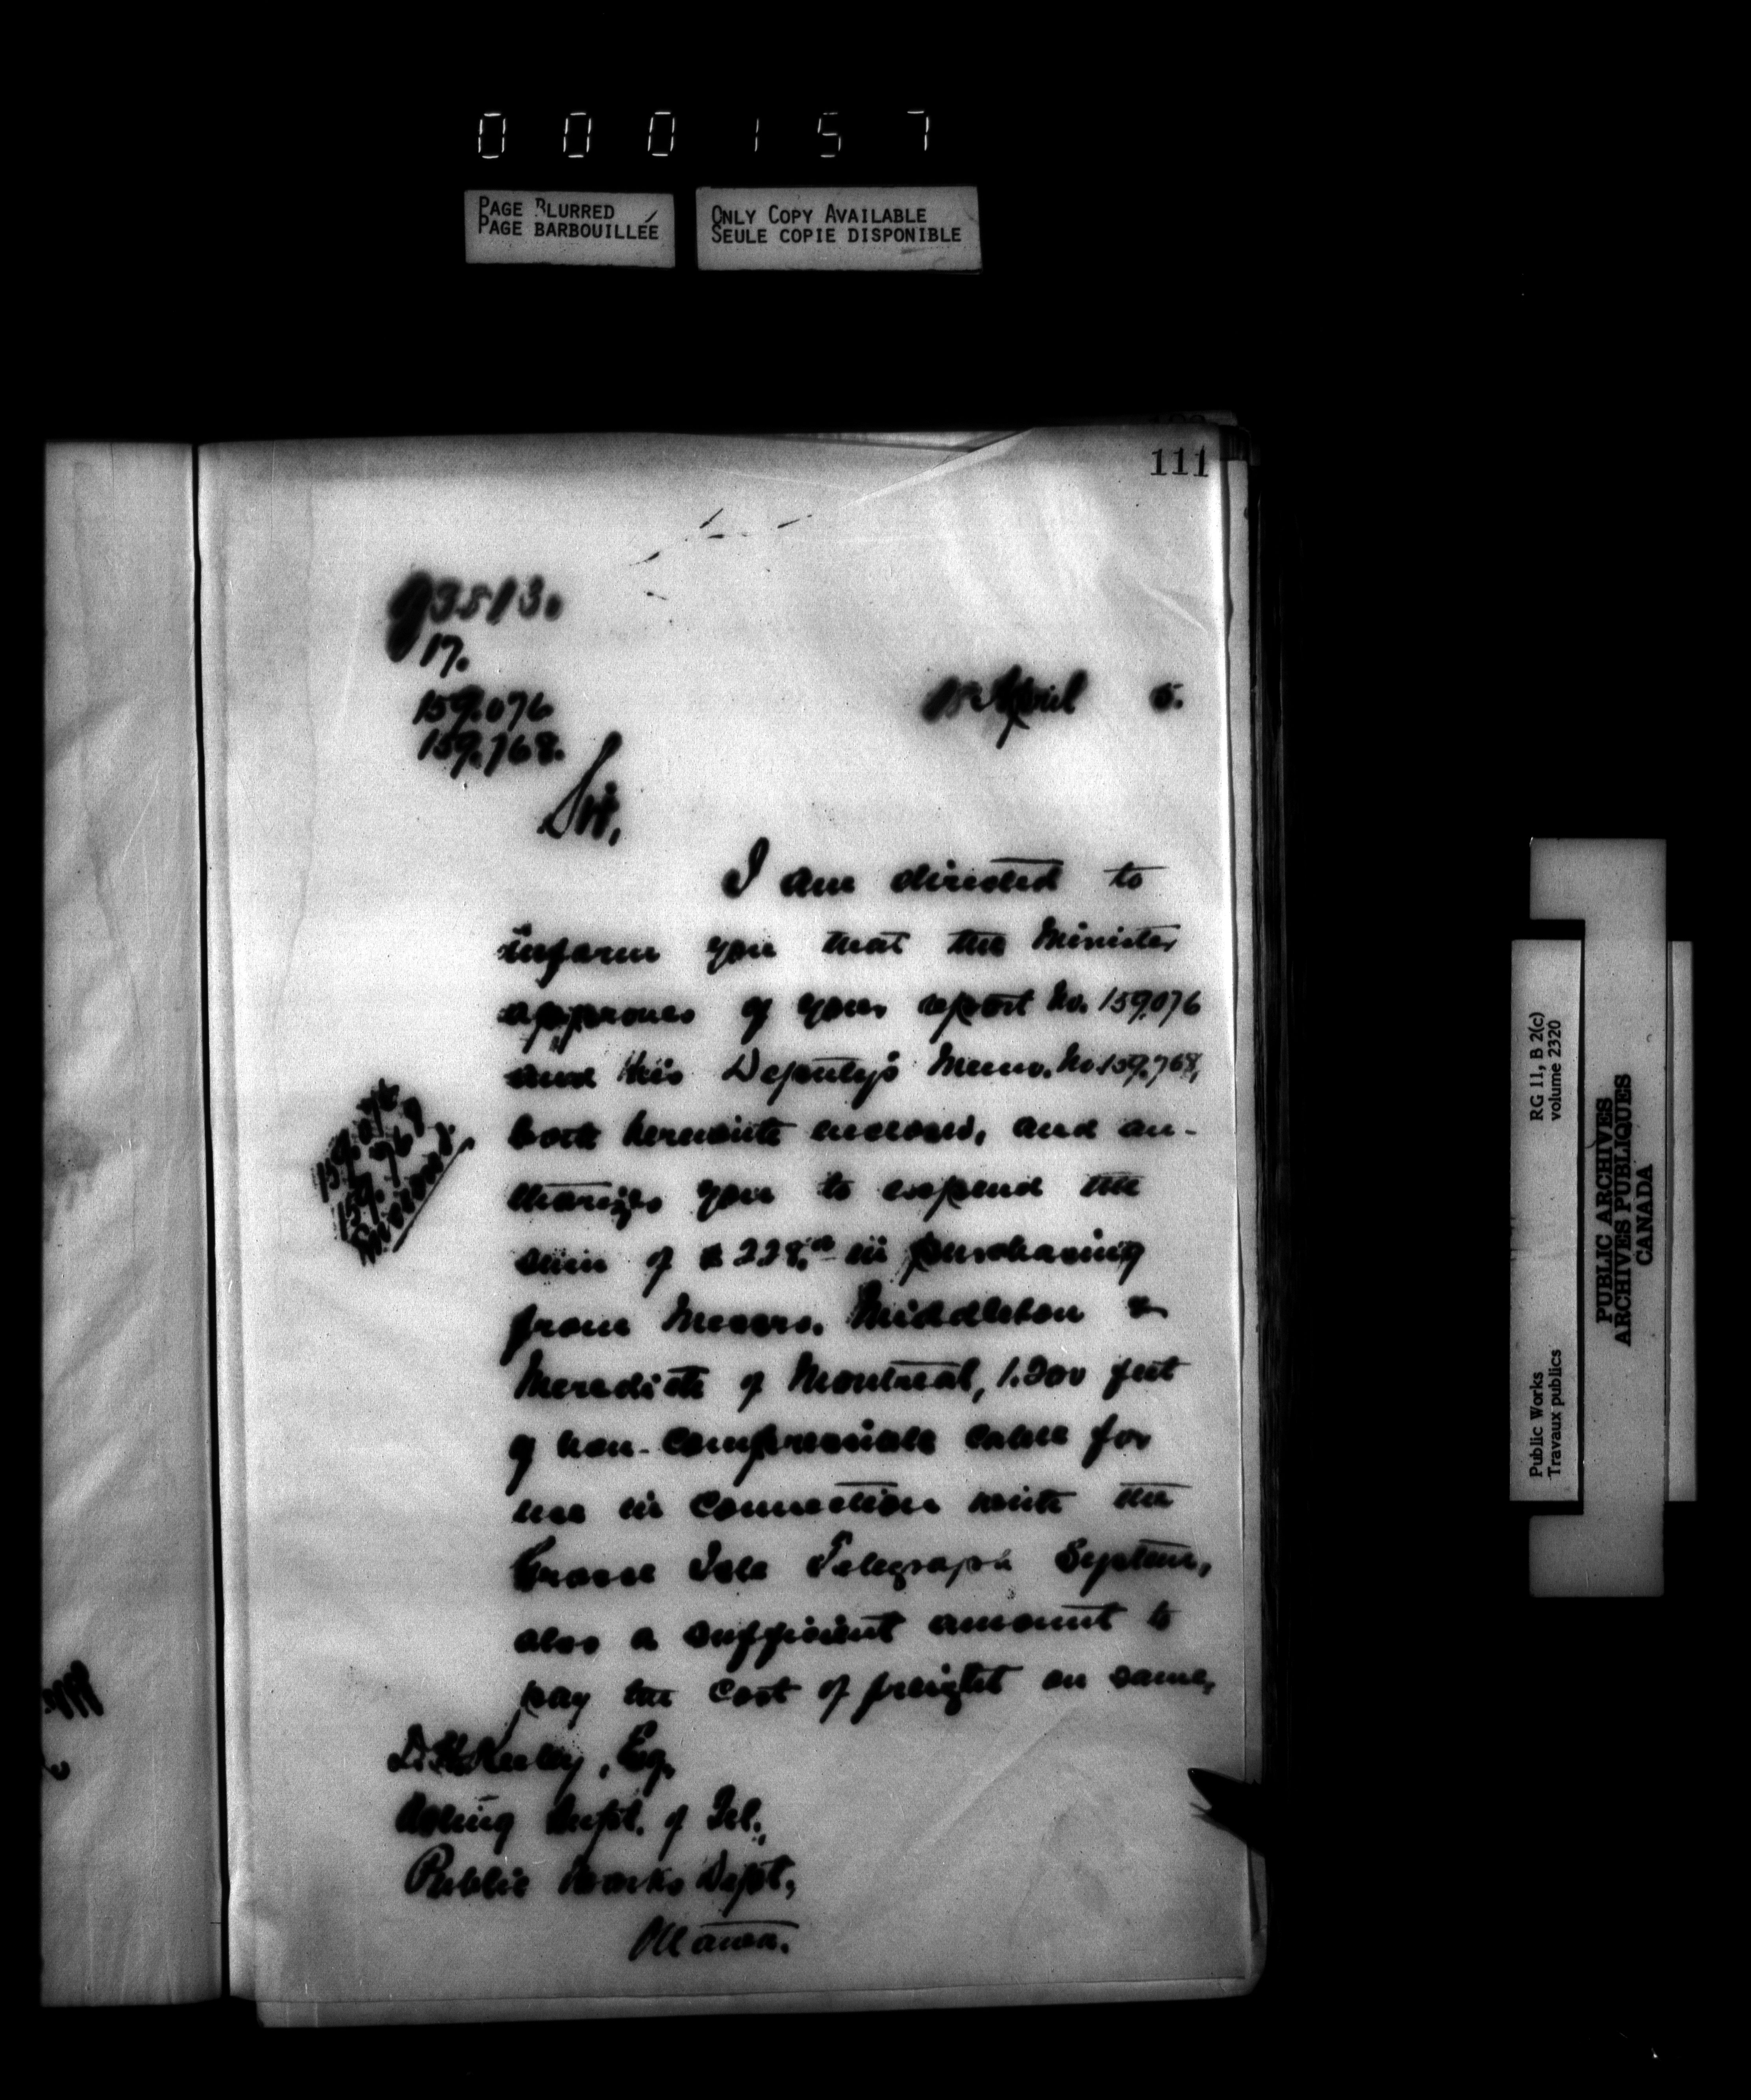 0 0 0 1 5 7
PAGE BLURRED
PAGE BARBOUILLÉE
ONLY COPY AVAILABLE
SEULE COPIE DISPONIBLE
111
93513.
17.
159.076
159.768.
April 5.
Sir,
I am directed to
inform you that the Minister
approves of your report No. 159.076
and his Deputy's Memo. No 159.768,
both herewith enclosed, and au-
thorizes you to expend the
sum of $228.00 in purchasing
from Messrs. Middleton &
Meredith of Montreal, 1.200 feet
of non-compressible cable for
use in connection with the
Grosse Isle Telegraph System,
also a sufficient amount to
pay the cost of freight on same,
159.076
159.768
Enclosed.
D. H. Keeley, Esq.
Acting Supt. of Tel.,
Public Works Dept,
Ottawa.
Public Works
Travaux publics
RG 11, B 2(c)
volume 2320
PUBLIC ARCHIVES
ARCHIVES PUBLIQUES
CANADA